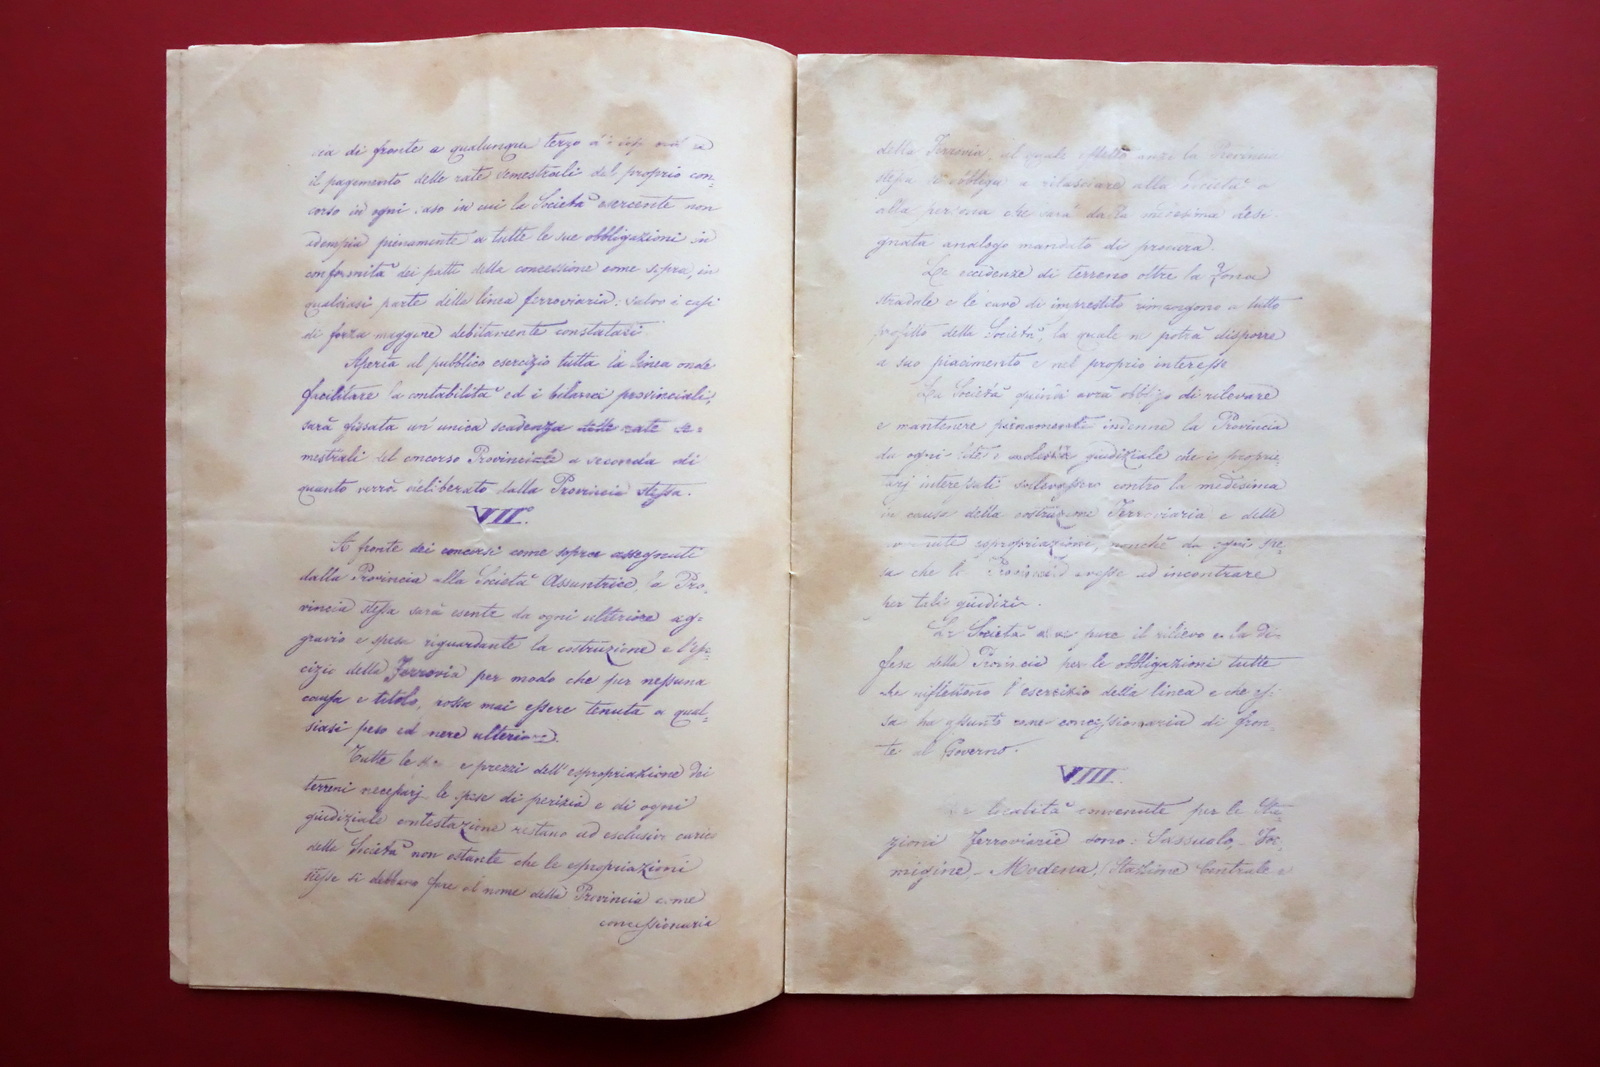 di fronte a qualunque terzo
il pagamento delle rate semestrali del proprio con=
corso in ogni caso in cui la Società esercente non
adempia pienamente a tutte le sue obbligazioni in
conformità dei patti della concessione come sopra, in
qualsiasi parte della linea ferroviaria: salvo i casi
di forza maggiore debitamente constatati
Aperta al pubblico esercizio tutta la linea onde
facilitare la contabilità ed i bilanci provinciali,
sarà fissata un'unica scadenza delle rate se=
mestrali del concorso Provinciale a seconda di
quanto verrà deliberato dalla Provincia stessa.
VII.°
A fronte dei concorsi come sopra assegnati
dalla Provincia alla Società Assuntrice, la Pro=
vincia stessa sarà esente da ogni ulteriore ag=
gravio e spesa riguardante la costruzione e l'eser=
cizio della Ferrovia per modo che per nessuna
causa e titolo, possa mai essere tenuta a qual=
siasi peso ed onere ulteriore.
Tutte le e prezzi dell'espropriazione dei
terreni necessarj le spese di perizia e di ogni
giudiziale contestazione restano ad esclusivo carico
della Società non ostante che le espropriazioni
stesse si debbano fare al nome della Provincia come
concessionaria
della Ferrovia, al quale effetto anzi la Provincia
stessa si obbliga a rilasciare alla Società o
alla persona che sarà dalla medesima desi=
gnata analogo mandato di procura.
Le eccedenze di terreno oltre la zona
stradale e le cave di imprestito rimangono a tutto
profitto della Società, la quale ne potrà disporre
a suo piacimento e nel proprio interesse
La Società quindi avrà obbligo di rilevare
e mantenere pienamente indenne la Provincia
da ogni lite e molestia giudiziale che i proprie=
tarj interessati sollevassero contro la medesima
in causa della costruzione Ferroviaria e delle
espropriazioni, nonchè da ogni spe=
sa che la Provincia avesse ad incontrare
per tali giudizi.
La Società pure il rilievo e la di=
fesa della Provincia per le obbligazioni tutte
che riflettono l'esercizio della linea e che es=
sa ha assunto come concessionaria di fron=
te al Governo.
VIII.
Le località convenute per le Sta=
zioni Ferroviarie sono: Sassuolo, For=
migine - Modena, (Stazione Centrale e